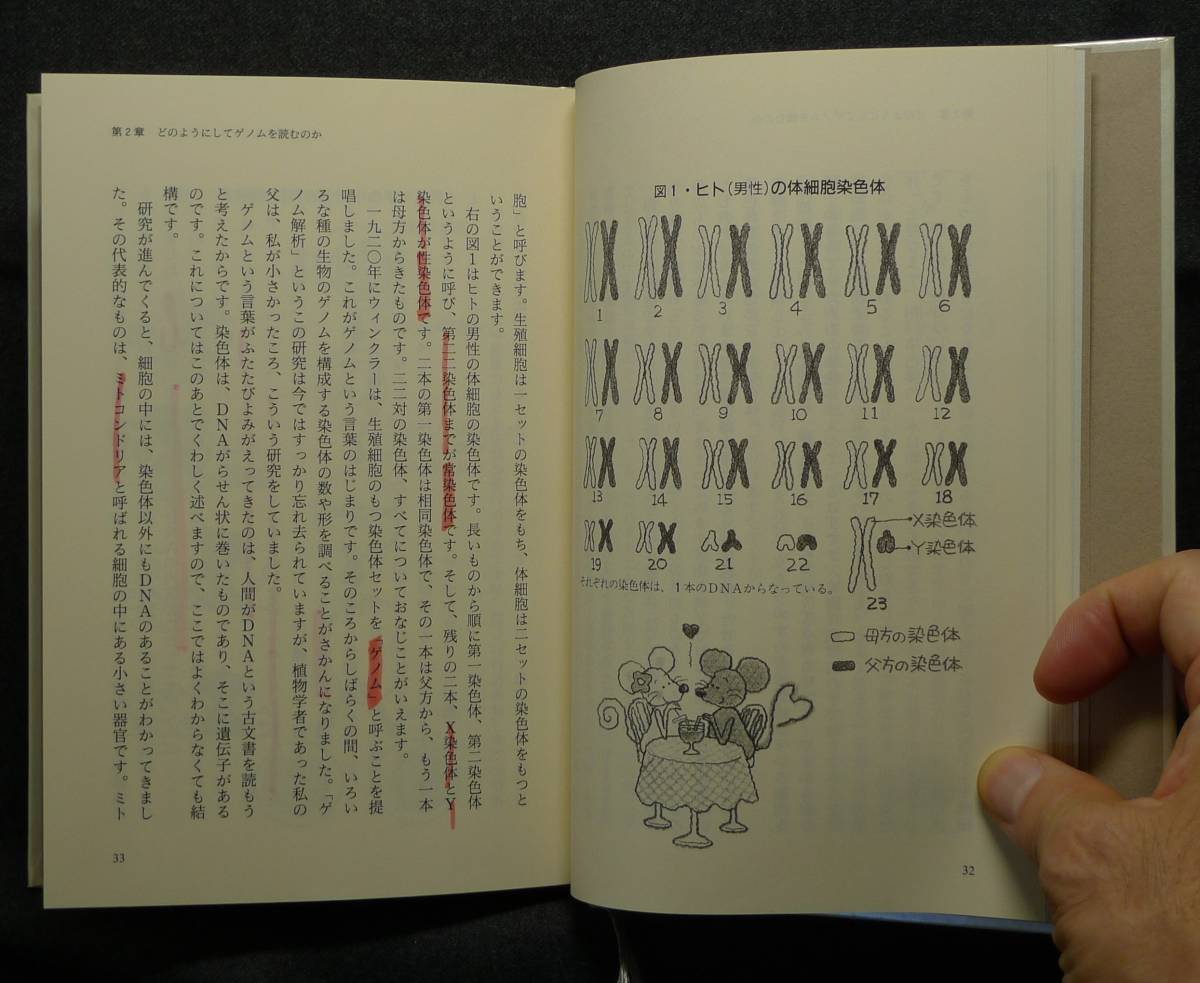 図1・ヒト（男性）の体細胞染色体
1
2
3
4
5
6
7
8
9
10
11
12
13
14
15
16
17
18
19
20
21
22
X染色体
Y染色体
23
それぞれの染色体は、1本のDNAからなっている。
母方の染色体
父方の染色体
32
第2章　どのようにしてゲノムを読むのか
胞」と呼びます。生殖細胞は一セットの染色体をもち、体細胞は二セットの染色体をもつと
いうことができます。
右の図1はヒトの男性の体細胞の染色体です。長いものから順に第一染色体、第二染色体
というように呼び、第二二染色体までが常染色体です。そして、残りの二本、X染色体とY
染色体が性染色体です。二本の第一染色体は相同染色体で、その一本は父方から、もう一本
は母方からきたものです。二二対の染色体、すべてについておなじことがいえます。
一九二〇年にウィンクラーは、生殖細胞のもつ染色体セットを「ゲノム」と呼ぶことを提
唱しました。これがゲノムという言葉のはじまりです。そのころからしばらくの間、いろい
ろな種の生物のゲノムを構成する染色体の数や形を調べることがさかんになりました。「ゲ
ノム解析」というこの研究は今ではすっかり忘れ去られていますが、植物学者であった私の
父は、私が小さかったころ、こういう研究をしていました。
ゲノムという言葉がふたたびよみがえってきたのは、人間がDNAという古文書を読もう
と考えたからです。染色体は、DNAがらせん状に巻いたものであり、そこに遺伝子がある
のです。これについてはこのあとでくわしく述べますので、ここではよくわからなくても結
構です。
研究が進んでくると、細胞の中には、染色体以外にもDNAのあることがわかってきまし
た。その代表的なものは、ミトコンドリアと呼ばれる細胞の中にある小さい器官です。ミト
33